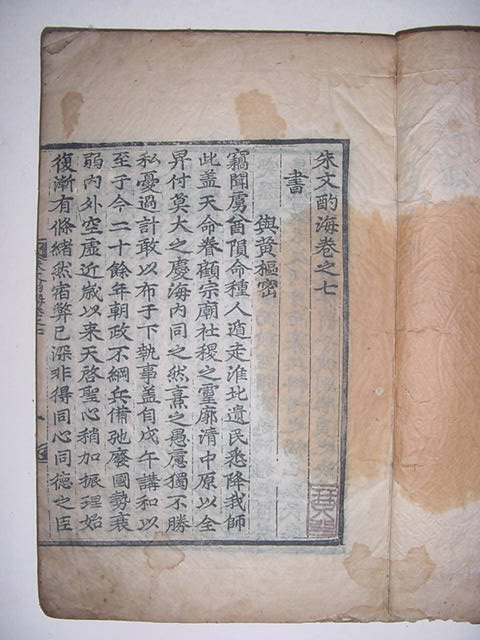 朱文酌海卷之七
書
與黄樞密
竊聞虜酋隕命種人遁走淮北遺民悉降我師
此盖天命眷顧宗廟社稷之靈廓清中原以全
昇付莫大之慶海内同之然熹之愚慮獨不勝
私憂過計敢以布于下執事盖自戊午講和以
至于今二十餘年朝政不綱兵備弛廢國勢衰
弱内外空虛近歲以来天啓聖心稍加振理始
復漸有條緒然宿弊已深非得同心同德之臣